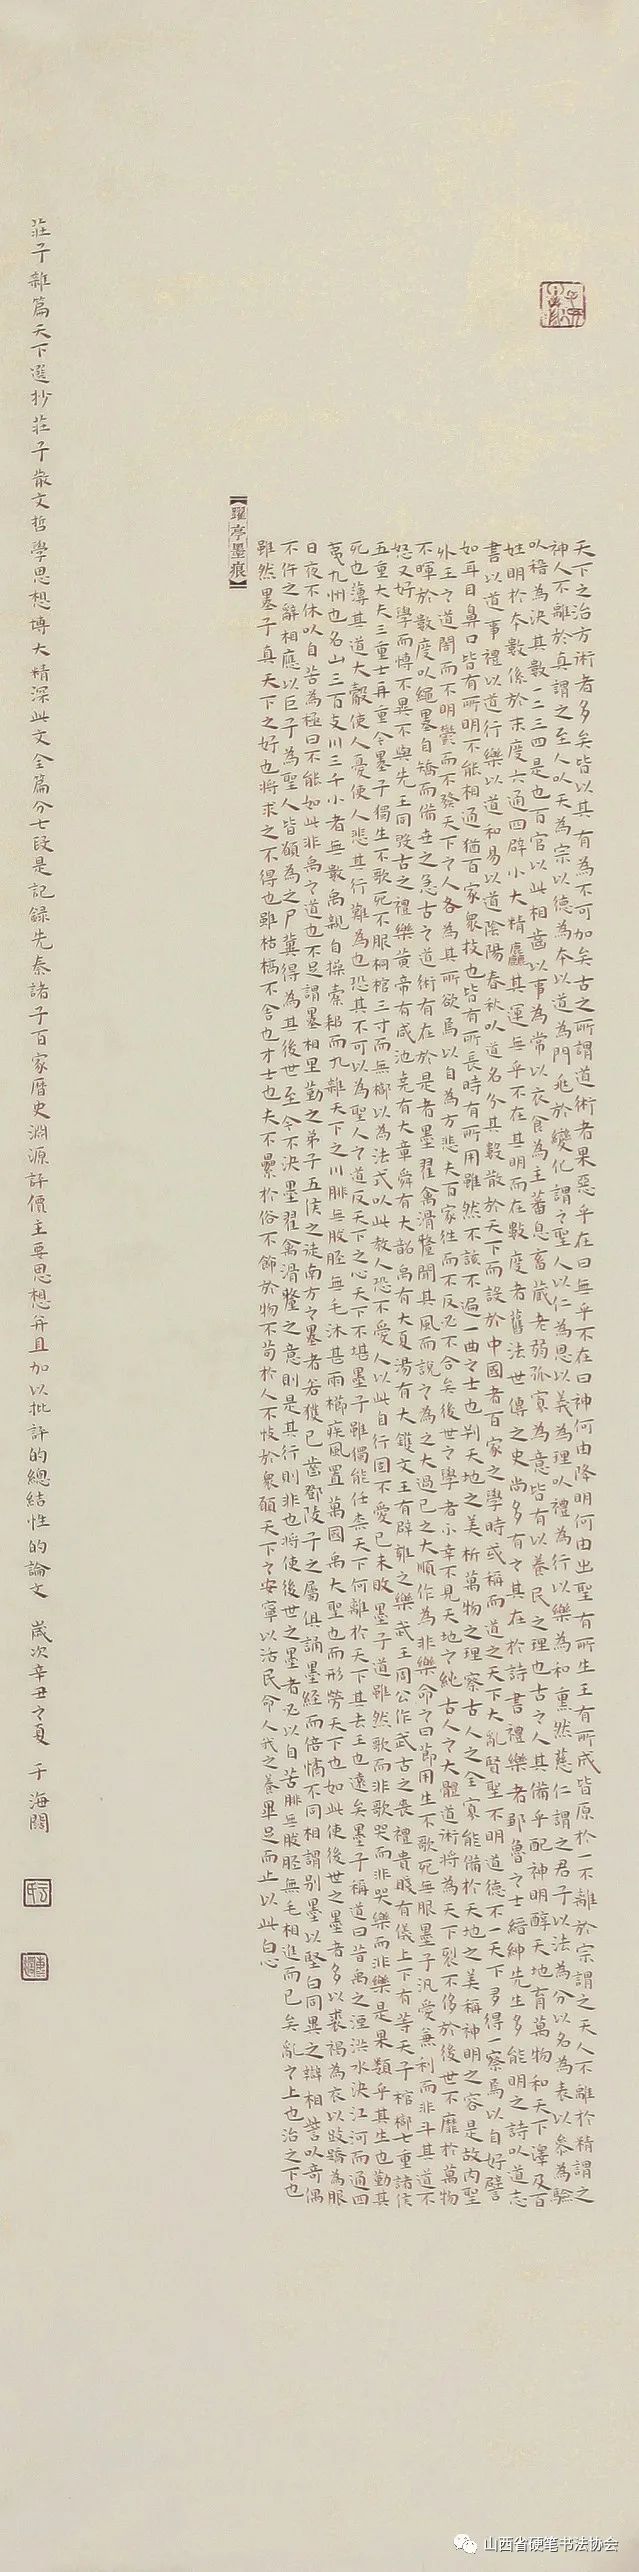 天下之治方術者多矣皆以其有為不可加矣古之所謂道術者果惡乎在曰無乎不在曰神何由降明何由出聖有所生王有所成皆原於一不離於宗謂之天人不離於精謂之
神人不離於真謂之至人以天為宗以德為本以道為門兆於變化謂之聖人以仁為恩以義為理以禮為行以樂為和熏然慈仁謂之君子以法為分以名為表以參為驗
以稽為決其數一二三四是也百官以此相齒以事為常以衣食為主蕃息畜藏老弱孤寡為意皆有以養民之理也古之人其備乎配神明醇天地育萬物和天下澤及百
姓明於本數係於末度六通四辟小大精麤其運無乎不在其明而在數度者舊法世傳之史尚多有之其在於詩書禮樂者鄒魯之士縉紳先生多能明之詩以道志
書以道事禮以道行樂以道和易以道陰陽春秋以道名分其數散於天下而設於中國者百家之學時或稱而道之天下大亂賢聖不明道德不一天下多得一察焉以自好譬
如耳目鼻口皆有所明不能相通猶百家衆技也皆有所長時有所用雖然不該不遍一曲之士也判天地之美析萬物之理察古人之全寡能備於天地之美稱神明之容是故內聖
外王之道闇而不明鬱而不發天下之人各為其所欲焉以自為方悲夫百家往而不反必不合矣後世之學者不幸不見天地之純古人之大體道術將為天下裂不侈於後世不靡於萬物
不暉於數度以繩墨自矯而備世之急古之道術有在於是者墨翟禽滑釐聞其風而說之為之大過已之大順作為非樂命之曰節用生不歌死無服墨子汎愛兼利而非斗其道不
怒又好學而博不異不與先王同毀古之禮樂黃帝有咸池堯有大章舜有大韶禹有大夏湯有大濩文王有辟雍之樂武王周公作武古之喪禮貴賤有儀上下有等天子棺槨七重諸侯
五重大夫三重士再重今墨子獨生不歌死不服桐棺三寸而無槨以為法式以此教人恐不愛人以此自行固不愛己未敗墨子道雖然歌而非歌哭而非哭樂而非樂是果類乎其生也勤其
死也薄其道大觳使人憂使人悲其行難為也恐其不可以為聖人之道反天下之心天下不堪墨子雖獨能任柰天下何離於天下其去王也遠矣墨子稱道曰昔禹之湮洪水決江河而通四
夷九州也名山三百支川三千小者無數禹親自操橐耜而九雜天下之川腓無胈脛無毛沐甚雨櫛疾風置萬國禹大聖也而形勞天下也如此使後世之墨者多以裘褐為衣以跂蹻為服
日夜不休以自苦為極曰不能如此非禹之道也不足謂墨相里勤之弟子五侯之徒南方之墨者若獲已齒鄧陵子之屬俱誦墨經而倍憰不同相謂別墨以堅白同異之辯相訾以奇偶
不仵之辭相應以巨子為聖人皆願為之尸冀得為其後世至今不決墨翟禽滑釐之意則是其行則非也將使後世之墨者必以自苦腓無胈脛無毛相進而已矣亂之上也治之下也
雖然墨子真天下之好也將求之不得也雖枯槁不舍也才士也夫不纍於俗不飾於物不苟於人不忮於衆願天下之安寧以活民命人我之養畢足而止以此白心
躍亭墨痕
莊子雜篇天下選抄莊子散文哲學思想博大精深此文全篇分七段是記錄先秦諸子百家曆史淵源評價主要思想并且加以批評的總結性的論文 歲次辛丑之夏 于海闊
山西省硬笔书法协会